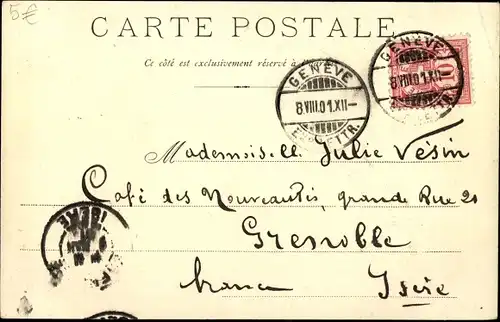 5€
CARTE POSTALE
Ce côté est exclusivement réservé à l'adresse
GENÈVE
8.VIII.01.XII–
EXP. LETTR.
GENÈVE
8.VIII.01.XII–
10
Mademoiselle Julie Vésin
Café des Nouveautés, grande Rue 21
Grenoble
france Isère
ISÈRE